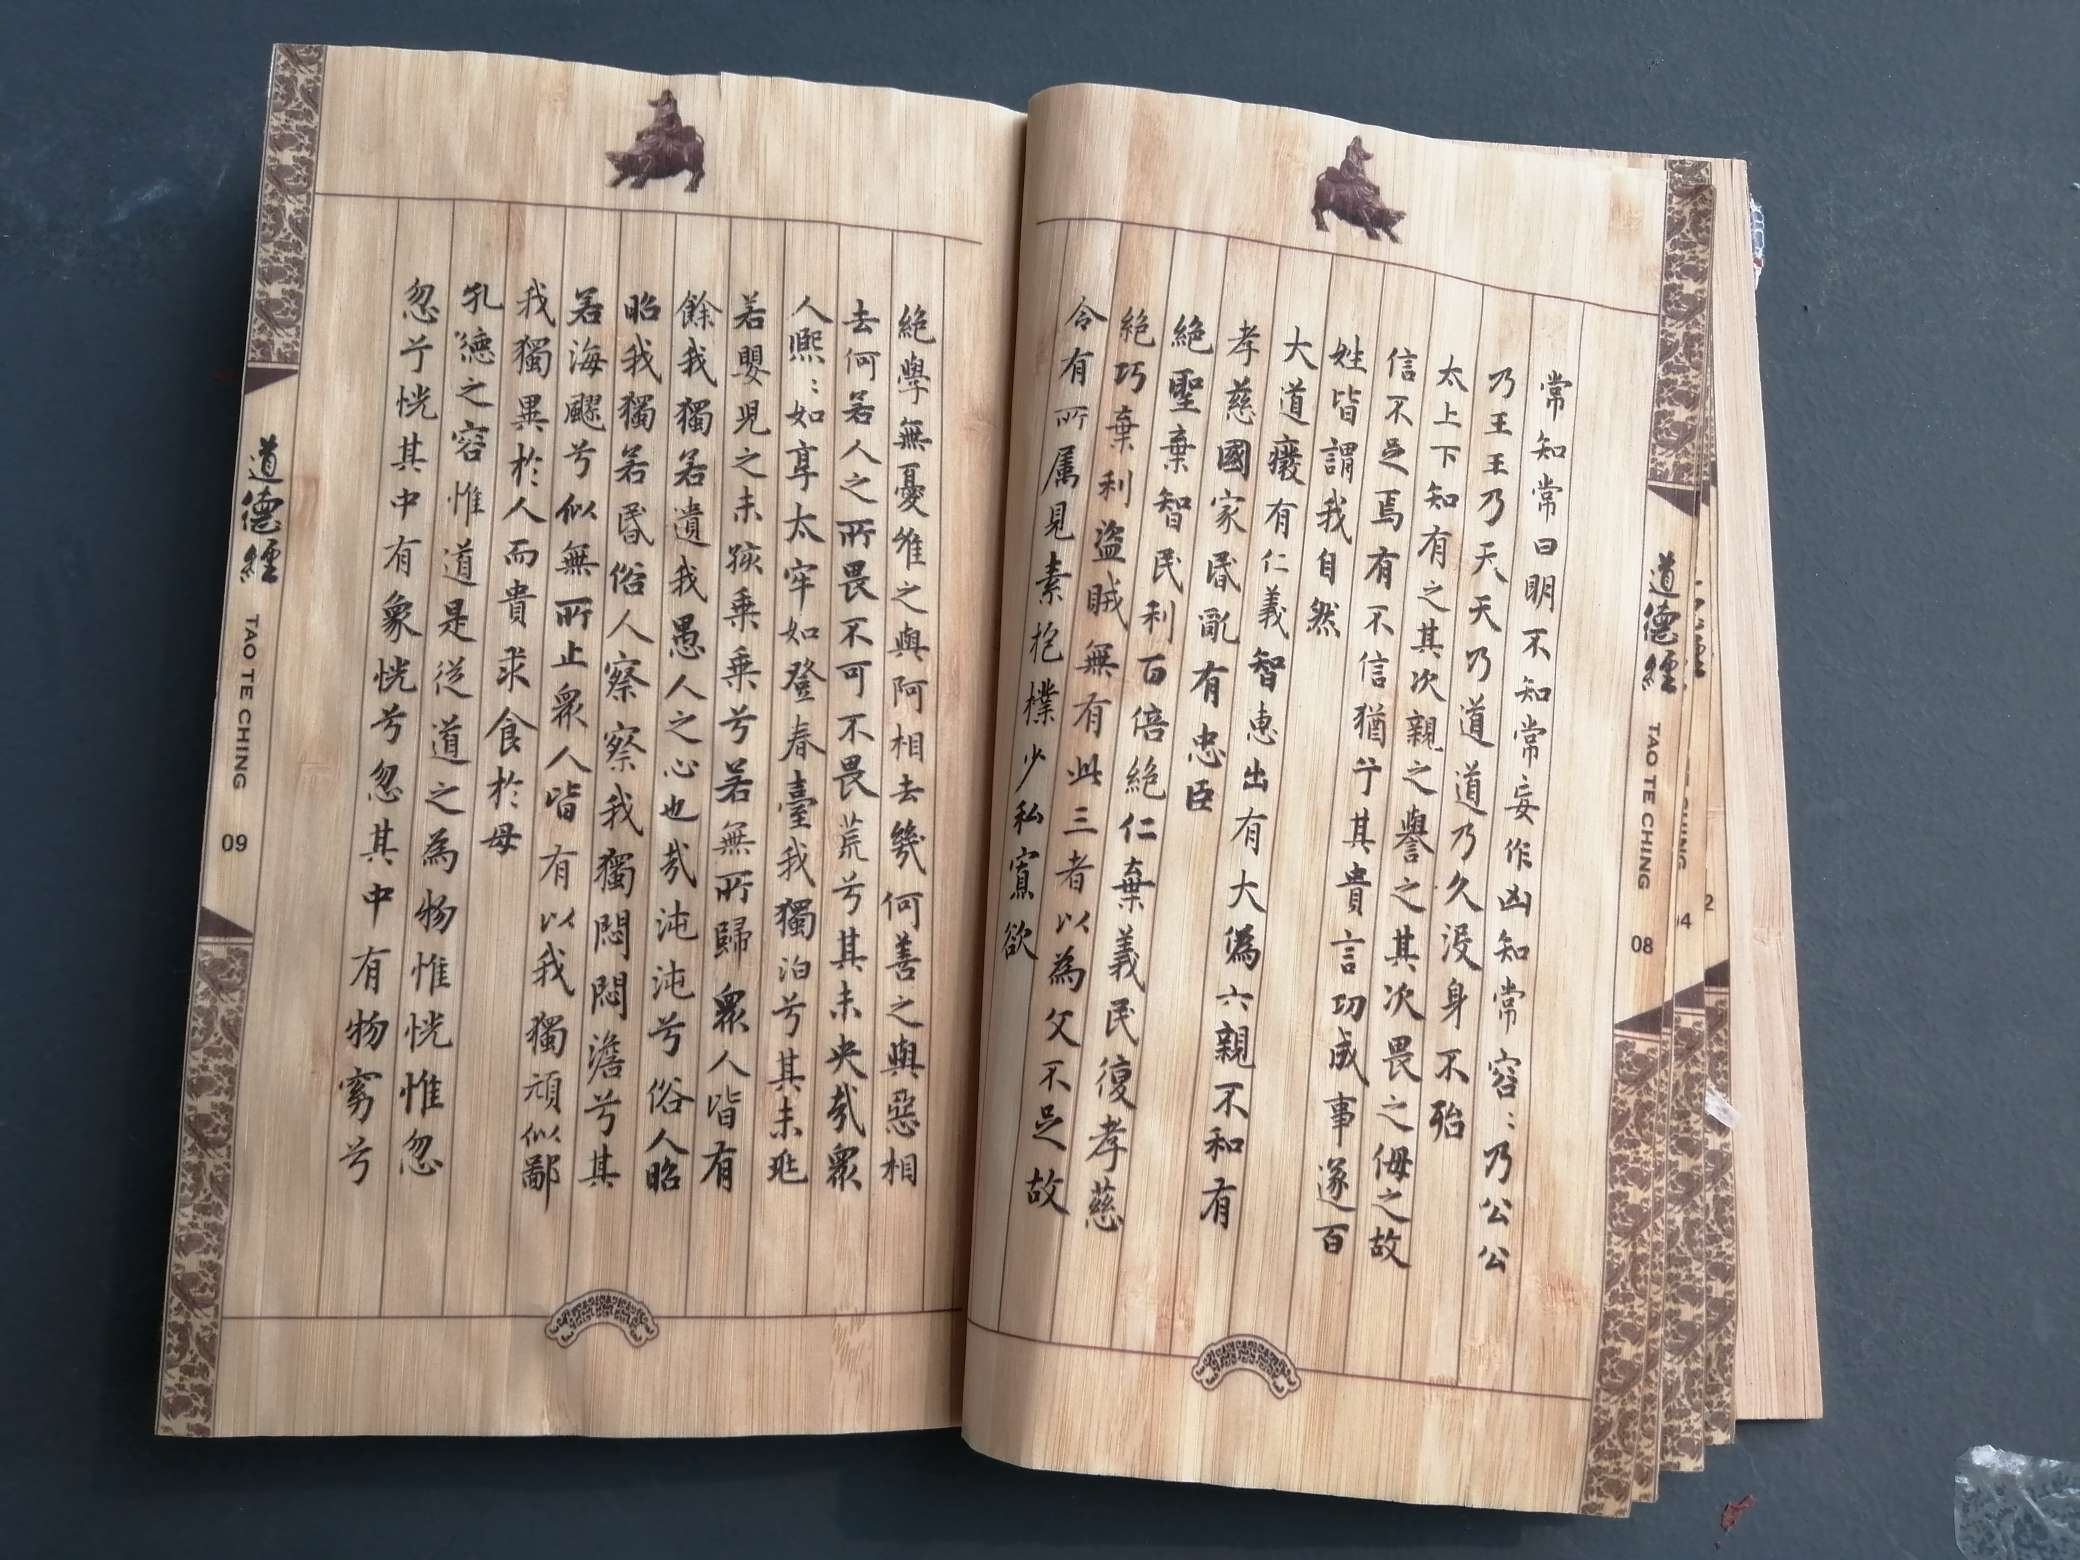 常知常曰明不知常妄作凶知常容:乃公公
乃王王乃天天乃道道乃久没身不殆
太上下知有之其次親之譽之其次畏之侮之故
信不足焉有不信猶兮其貴言功成事遂百
姓皆謂我自然
大道癈有仁義智惠出有大偽六親不和有
孝慈國家昬亂有忠臣
絶聖棄智民利百倍絶仁棄義民復孝慈
絶巧棄利盜賊無有此三者以為文不足故
令有所属見素抱樸少私寡欲
道德經 TAO TE CHING 08
絶學無憂唯之與阿相去幾何善之與惡相
去何若人之所畏不可不畏荒兮其未央哉衆
人熈:如享太牢如登春臺我獨泊兮其未兆
若嬰児之未孩乗乗兮若無所歸衆人皆有
餘我獨若遺我愚人之心也哉沌沌兮俗人昭
昭我獨若昬俗人察察我獨悶悶澹兮其
若海飂兮似無所止衆人皆有以我獨頑似鄙
我獨異於人而貴求食於母
孔德之容惟道是従道之為物惟恍惟忽
忽兮恍其中有象恍兮忽其中有物窈兮
道德經 TAO TE CHING 09